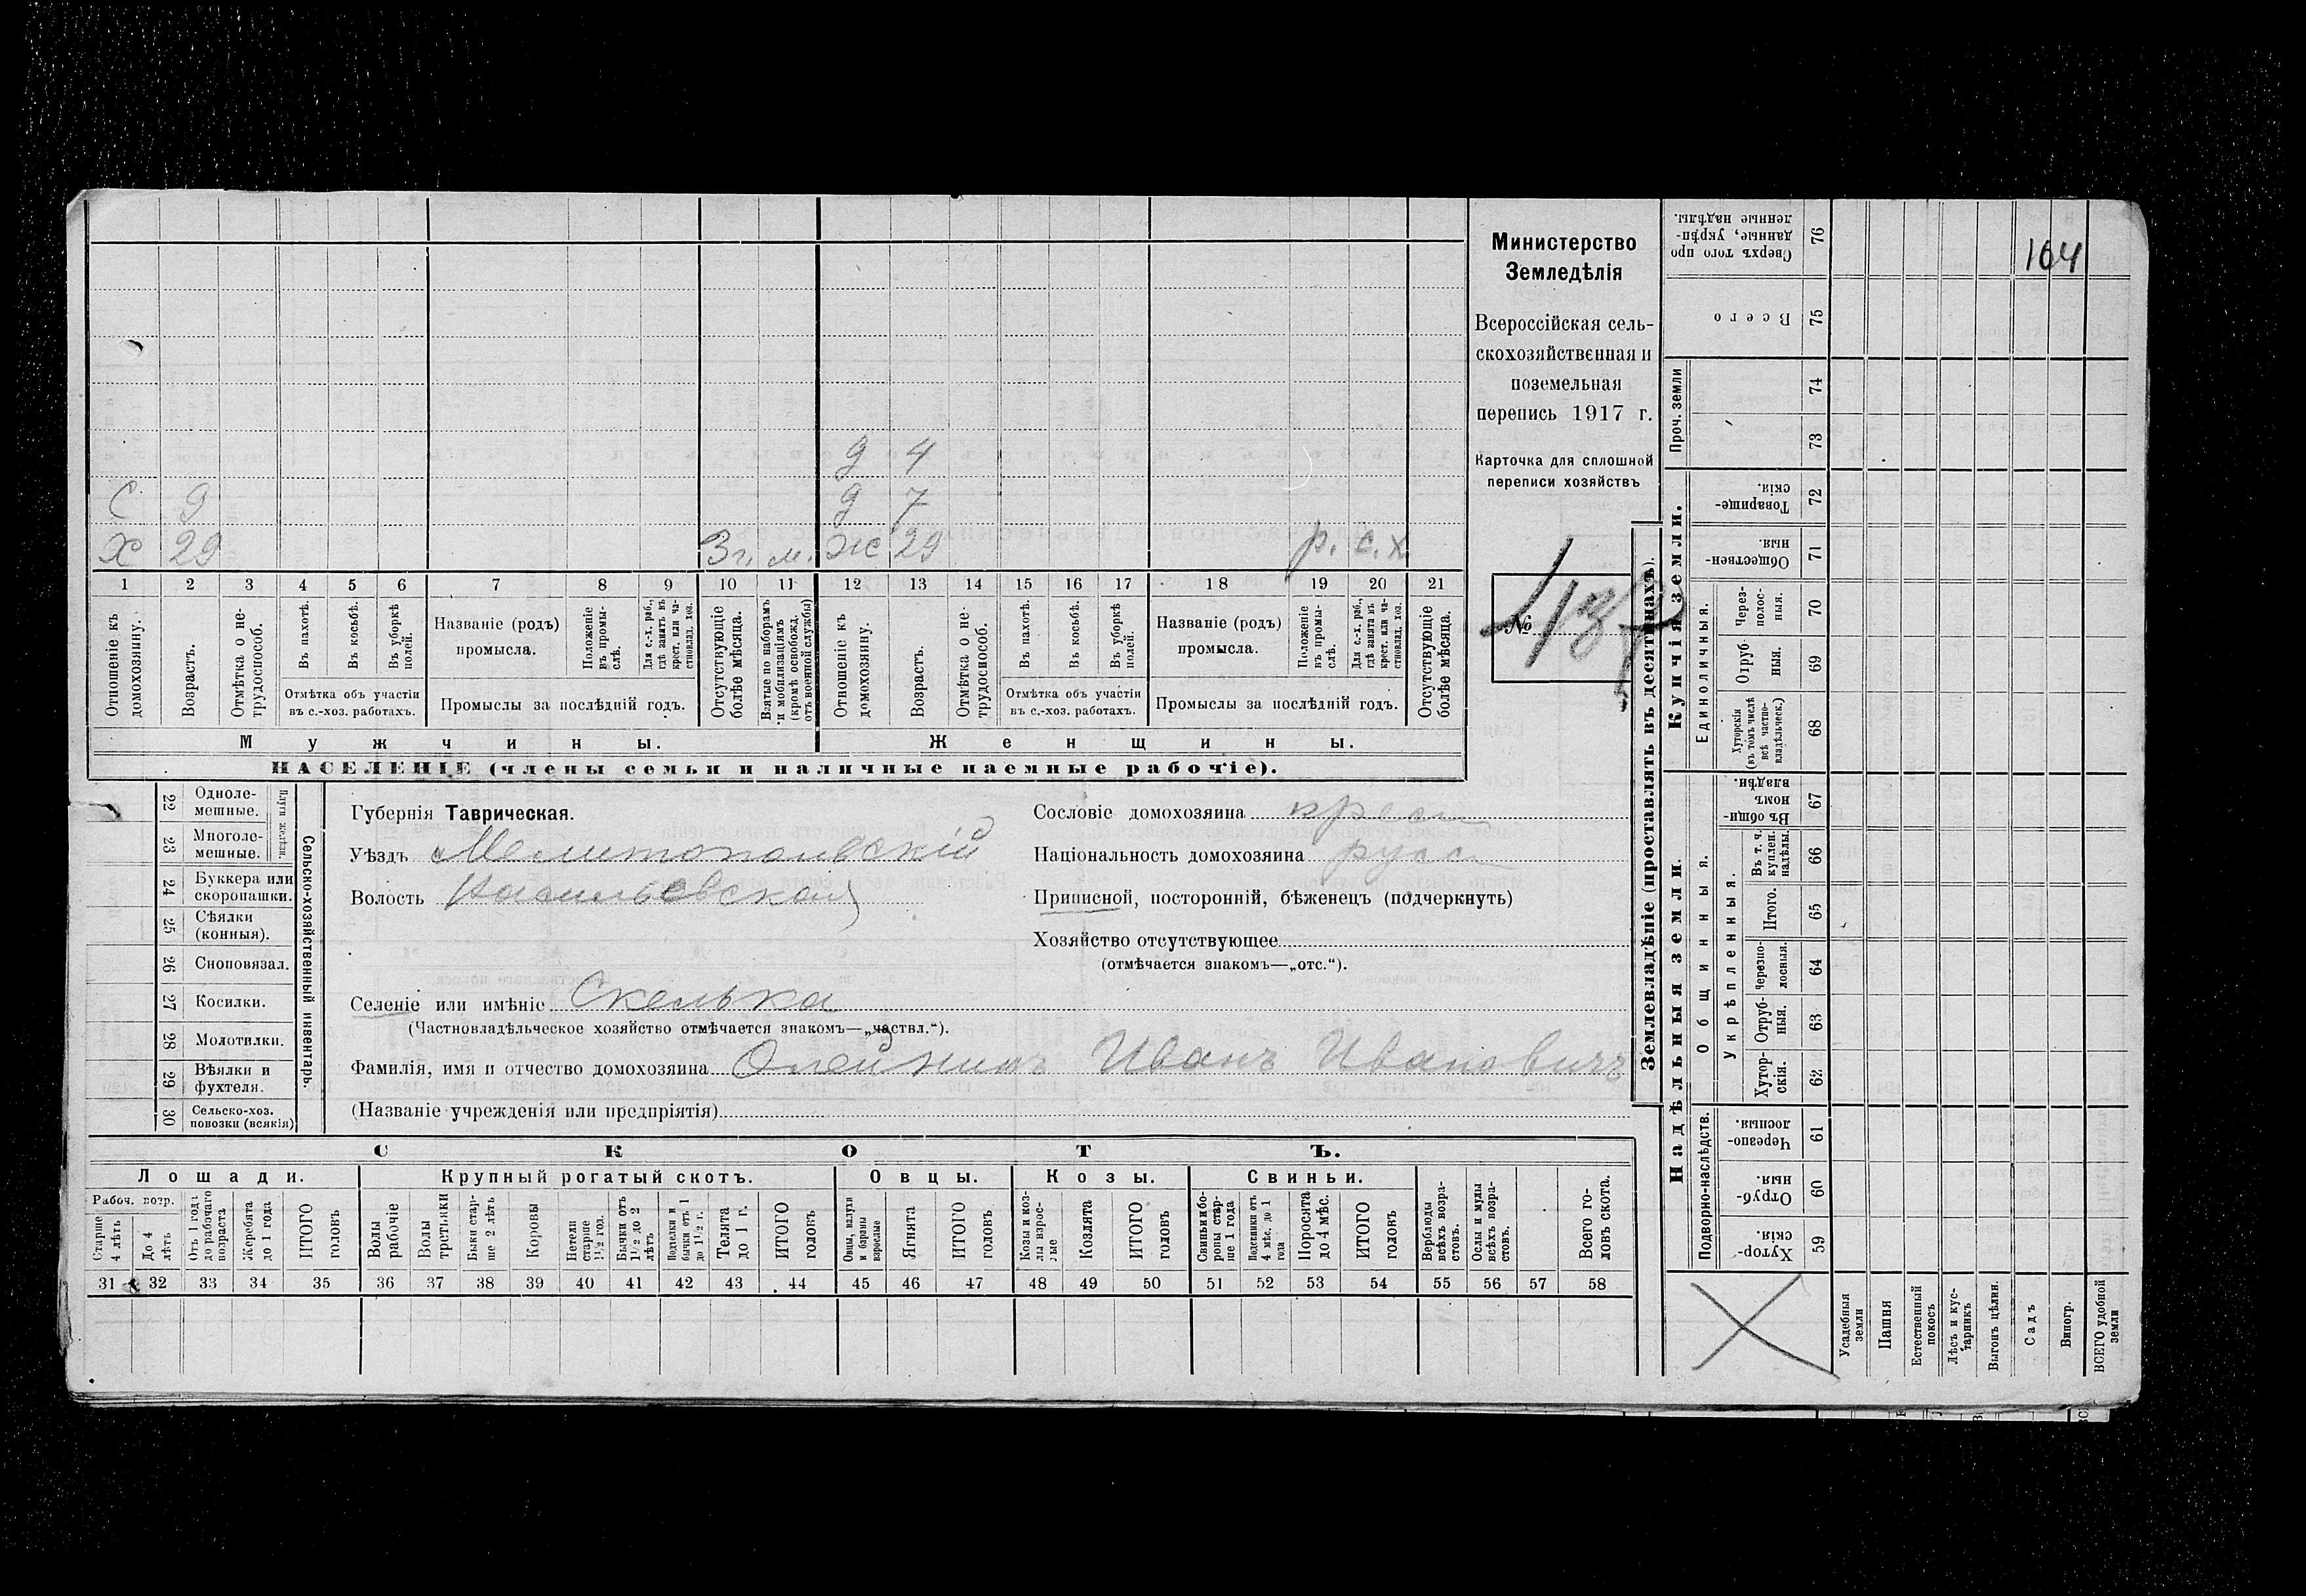 164
Министерство
Земледѣлія
Всероссійская сель-
скохозяйственная и
поземельная
перепись 1917 г.
Карточка для сплошной
переписи хозяйствъ
№
д 4
С 9 д 7
Х 29 3г. м. Ж 29 р. с.х.
1 2 3 4 5 6 7 8 9 10 11 12 13 14 15 16 17 18 19 20 21
Отношеніе къ домохозяину.
Возрастъ.
Отмѣтка о не-трудоспособ.
Въ пахотѣ.
Въ косьбѣ.
Въ уборкѣ полей.
Отмѣтка объ участіи
въ с.-хоз. работахъ.
Названіе (родъ)
промысла.
Положеніе въ промы-слѣ.
Для с.-х. раб., гдѣ занятъ въ крест. или ча-стновлад. хоз.
Промыслы за послѣдній годъ.
Отсутствующіе болѣе мѣсяца.
Взятые по наборамъ и мобилизаціямъ (кромѣ освобожд. отъ военной службы)
Отношеніе къ домохозяину.
Возрастъ.
Отмѣтка о не-трудоспособ.
Въ пахотѣ.
Въ косьбѣ.
Въ уборкѣ полей.
Отмѣтка объ участіи
въ с.-хоз. работахъ.
Названіе (родъ)
промысла.
Положеніе въ промы-слѣ.
Для с.-х. раб., гдѣ занята въ крест. или ча-стновлад. хоз.
Промыслы за послѣдній годъ.
Отсутствующіе болѣе мѣсяца.
Мужчины. Женщины.
НАСЕЛЕНІЕ (члены семьи и наличные наемные рабочіе).
22 Одноле-мешные.
23 Многоле-мешные.
24 Буккера или скоропашки.
25 Сѣялки (конныя).
26 Сноповязал.
27 Косилки.
28 Молотилки.
29 Вѣялки и фухтеля.
30 Сельско-хоз. повозки (всякія)
Сельско-хозяйственный инвентарь.
Губернія Таврическая.
Уѣздъ Мелитопольскій
Волость Васильевская
Селеніе или имѣніе Скелька
(Частновладѣльческое хозяйство отмѣчается знакомъ—„частвл.“).
Фамилія, имя и отчество домохозяина Олейникъ Иванъ Ивановичъ
(Названіе учрежденія или предпріятія)
Сословіе домохозяина крест
Національность домохозяина русск
Приписной, посторонній, бѣженецъ (подчеркнуть)
Хозяйство отсутствующее
(отмѣчается знакомъ—„отс.“).
СКОТЪ.
Лошади. Крупный рогатый скотъ. Овцы. Козы. Свиньи.
Рабоч. возр.
Старше 4 лѣтъ
До 4 лѣтъ
Отъ 1 года до рабочаго возраста
Жеребята до 1 года
ИТОГО головъ
Волы рабочіе
Волы третьяки
Быки стар-ше 2 лѣтъ
Коровы
Нетели старше 1½ год.
Бычки отъ 1½ до 2 лѣтъ
Телята до 1 г.
ИТОГО головъ
Овцы, валухи и бараны взрослые
Ягнята
ИТОГО головъ
Козы и коз-лы взрос-лые
Козлята
ИТОГО головъ
Свиньи и бо-ровы стар-ше 1 года
Подсвинки отъ 4 мѣс. до 1 года
Поросята до 4 мѣс.
ИТОГО головъ
Верблюды всѣхъ возра-стовъ.
Ослы и мулы всѣхъ возра-стовъ.
Всего го-ловъ скота.
31 32 33 34 35 36 37 38 39 40 41 42 43 44 45 46 47 48 49 50 51 52 53 54 55 56 57 58
Землевладѣніе (проставлять въ десятинахъ).
Купчія земли.
Надѣльныя земли.
Сверхъ того про-данные, укрѣп-ленные надѣлы. 76
Всего 75
Проч. земли
74
73
Товарище-скія. 72
Обществен-ныя. 71
Единоличныя.
Через-полос-ныя. 70
Отруб-ныя. 69
Хуторскія (въ томъ числѣ всѣ частно-владѣльческ.) 68
Общинныя.
Въ общи-номъ владѣн. 67
Укрѣпленныя.
Въ т. ч. куплен. надѣлы. 66
Итого. 65
Черезпо-лосныя. 64
Отруб-ныя. 63
Хутор-скія. 62
Подворно-наслѣдств.
Черезпо-лосныя. 61
Отруб-ныя. 60
Хутор-скія. 59
Усадебныя земли
Пашня
Естественный покосъ
Лѣсъ и кус-тарникъ
Выгонъ цѣлин.
Садъ
Виногр.
ВСЕГО удобной земли